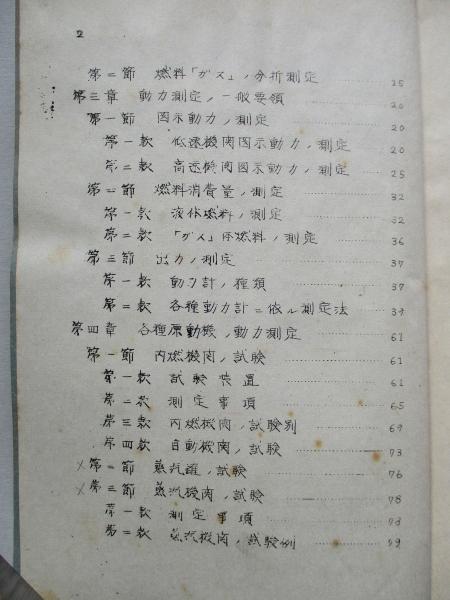 2
第二節 燃料「ガス」ノ分析測定 15
第三章 動力測定ノ一般要領 20
第一節 図示動力ノ測定 20
第一款 低速機関図示動力ノ測定 20
第二款 高速機関図示動力ノ測定 25
第二節 燃料消費量ノ測定 32
第一款 液体燃料ノ測定 32
第二款 「ガス」体燃料ノ測定 36
第三節 出力ノ測定 37
第一款 動力計ノ種類 37
第二款 各種動力計ニ依ル測定法
第四章 各種原動機ノ動力測定 61
第一節 内燃機関ノ試験 61
第一款 試験装置 61
第二款 測定事項 65
第三款 内燃機関ノ試験別 69
第四款 自動機関ノ試験 73
第二節 蒸汽罐ノ試験 76
第三節 蒸汽機関ノ試験 78
第一款 測定事項 78
第二款 蒸汽機関ノ試験例 99